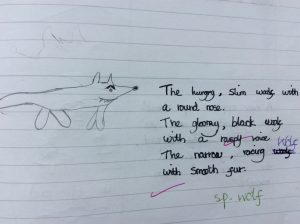 The hungry, slim woolf with
a round nose.
The gloomy, black woolf
with a raspy voice
wolf
The narrow, racing
with smooth fur.
sp. wolf